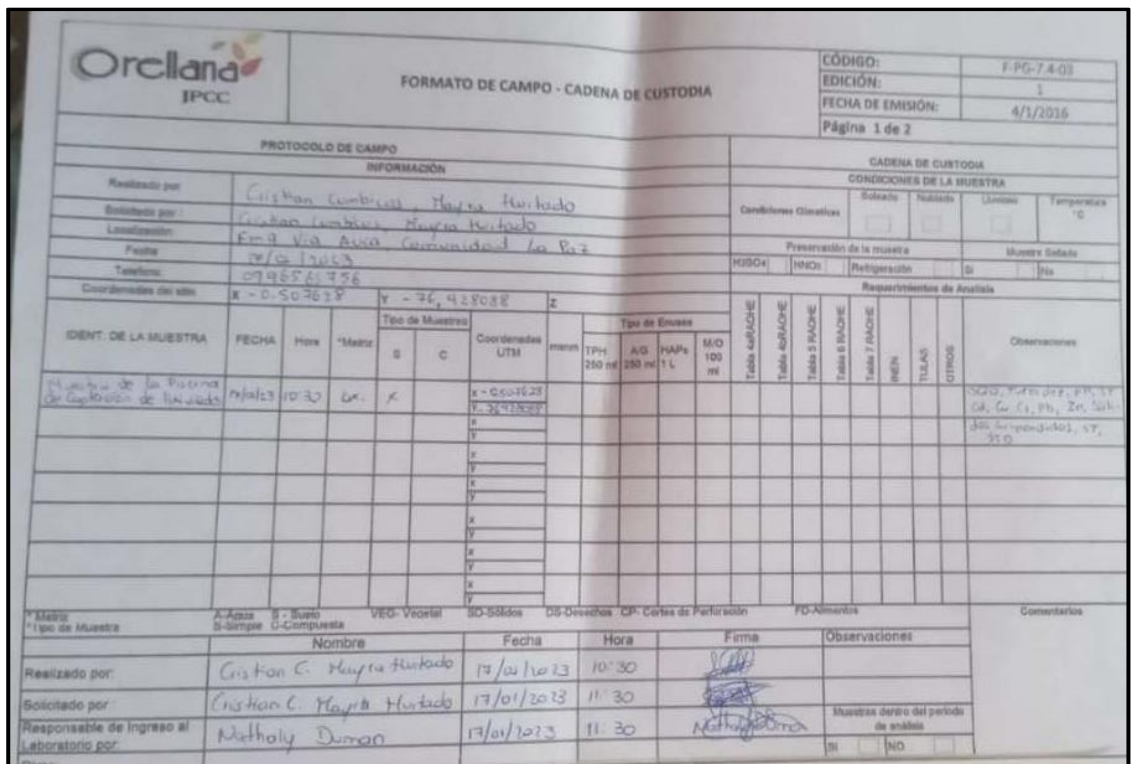 Orellana
JPCC
FORMATO DE CAMPO - CADENA DE CUSTODIA
CÓDIGO: F-PG-7.4-03
EDICIÓN: 1
FECHA DE EMISIÓN: 4/1/2016
Página 1 de 2
PROTOCOLO DE CAMPO
INFORMACIÓN
CADENA DE CUSTODIA
CONDICIONES DE LA MUESTRA
Realizado por: Cristian Cumbicus, Mayra Hurtado
Solicitado por : Cristian Cumbicus, Mayra Hurtado
Localización: Km 9 Via Auca Comunidad La Paz
Fecha 2023
Telefono:
Coordenadas del sitio X -0.507628 Y -76,428088 Z
Condiciones Climaticas Soleado Nublado Lluvioso Temperatura °C
Preservación de la muestra Muestra Sellada
H2SO4 HNO3 Refrigeración Si No
Requerimientos de Analisis
IDENT. DE LA MUESTRA FECHA Hora *Matriz Tipo de Muestras S C Coordenadas UTM msnm
Tipo de Envase
TPH 250 ml A/G 250 ml HAPs 1 L M/O 100 ml
Tabla 4aRAOHE Tabla 4bRAOHE Tabla 5 RAOHE Tabla 6 RAOHE Tabla 7 RAOHE INEN TULAS OTROS Observaciones
Muestra de la Piscina
de Captación de lixiviado 10:30 x
X
Y
X
Y
X
Y
X
Y
X
Y
X
Y
X
Y
* Matriz A-Agua S - Suelo VEG- Vegetal SD-Sólidos DS-Desechos CP- Cortes de Perforación FD-Alimentos Comentarios
*Tipo de Muestra S-Simple C-Compuesta
Nombre Fecha Hora Firma Observaciones
Realizado por: Cristian C. Mayra Hurtado 17/01/2023 10:30
Solicitado por : Cristian C. Mayra Hurtado 17/01/2023 11:30
Responsable de Ingreso al Laboratorio por: Nathaly Duman 17/01/2023 11:30
Muestras dentro del periodo de análisis
SI NO